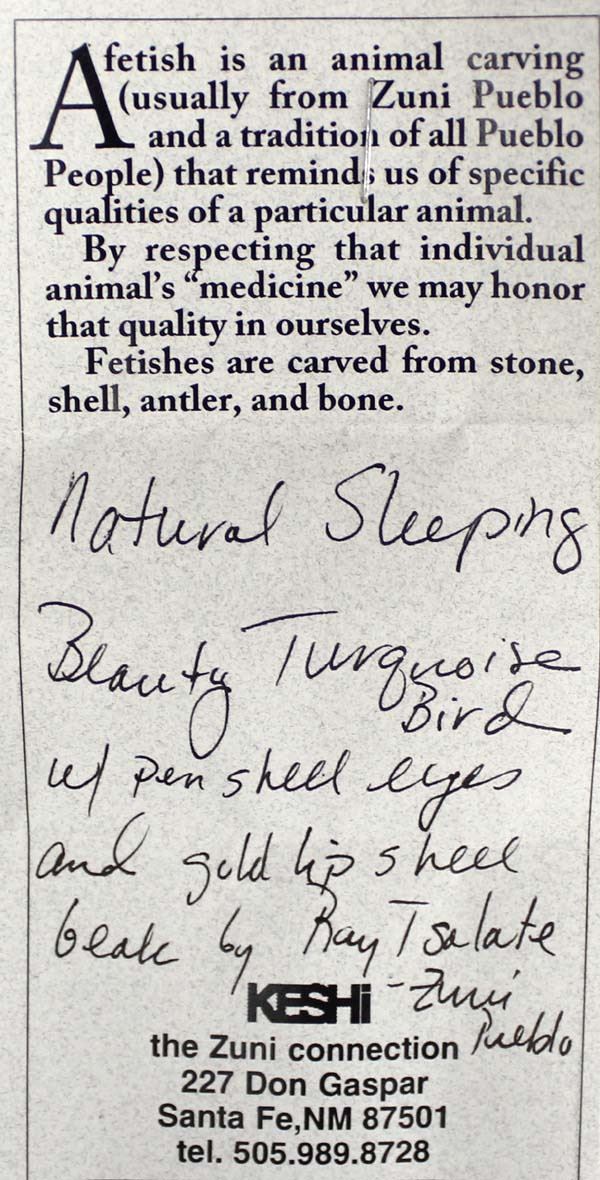 A fetish is an animal carving
(usually from Zuni Pueblo
and a tradition of all Pueblo
People) that reminds us of specific
qualities of a particular animal.
By respecting that individual
animal's "medicine" we may honor
that quality in ourselves.
Fetishes are carved from stone,
shell, antler, and bone.
Natural Sleeping
Beauty Turquoise
Bird
w/ pen shell eyes
and gold lip shell
beak by Ray Tsalate
- Zuni
Pueblo
KESHi
the Zuni connection
227 Don Gaspar
Santa Fe,NM 87501
tel. 505.989.8728